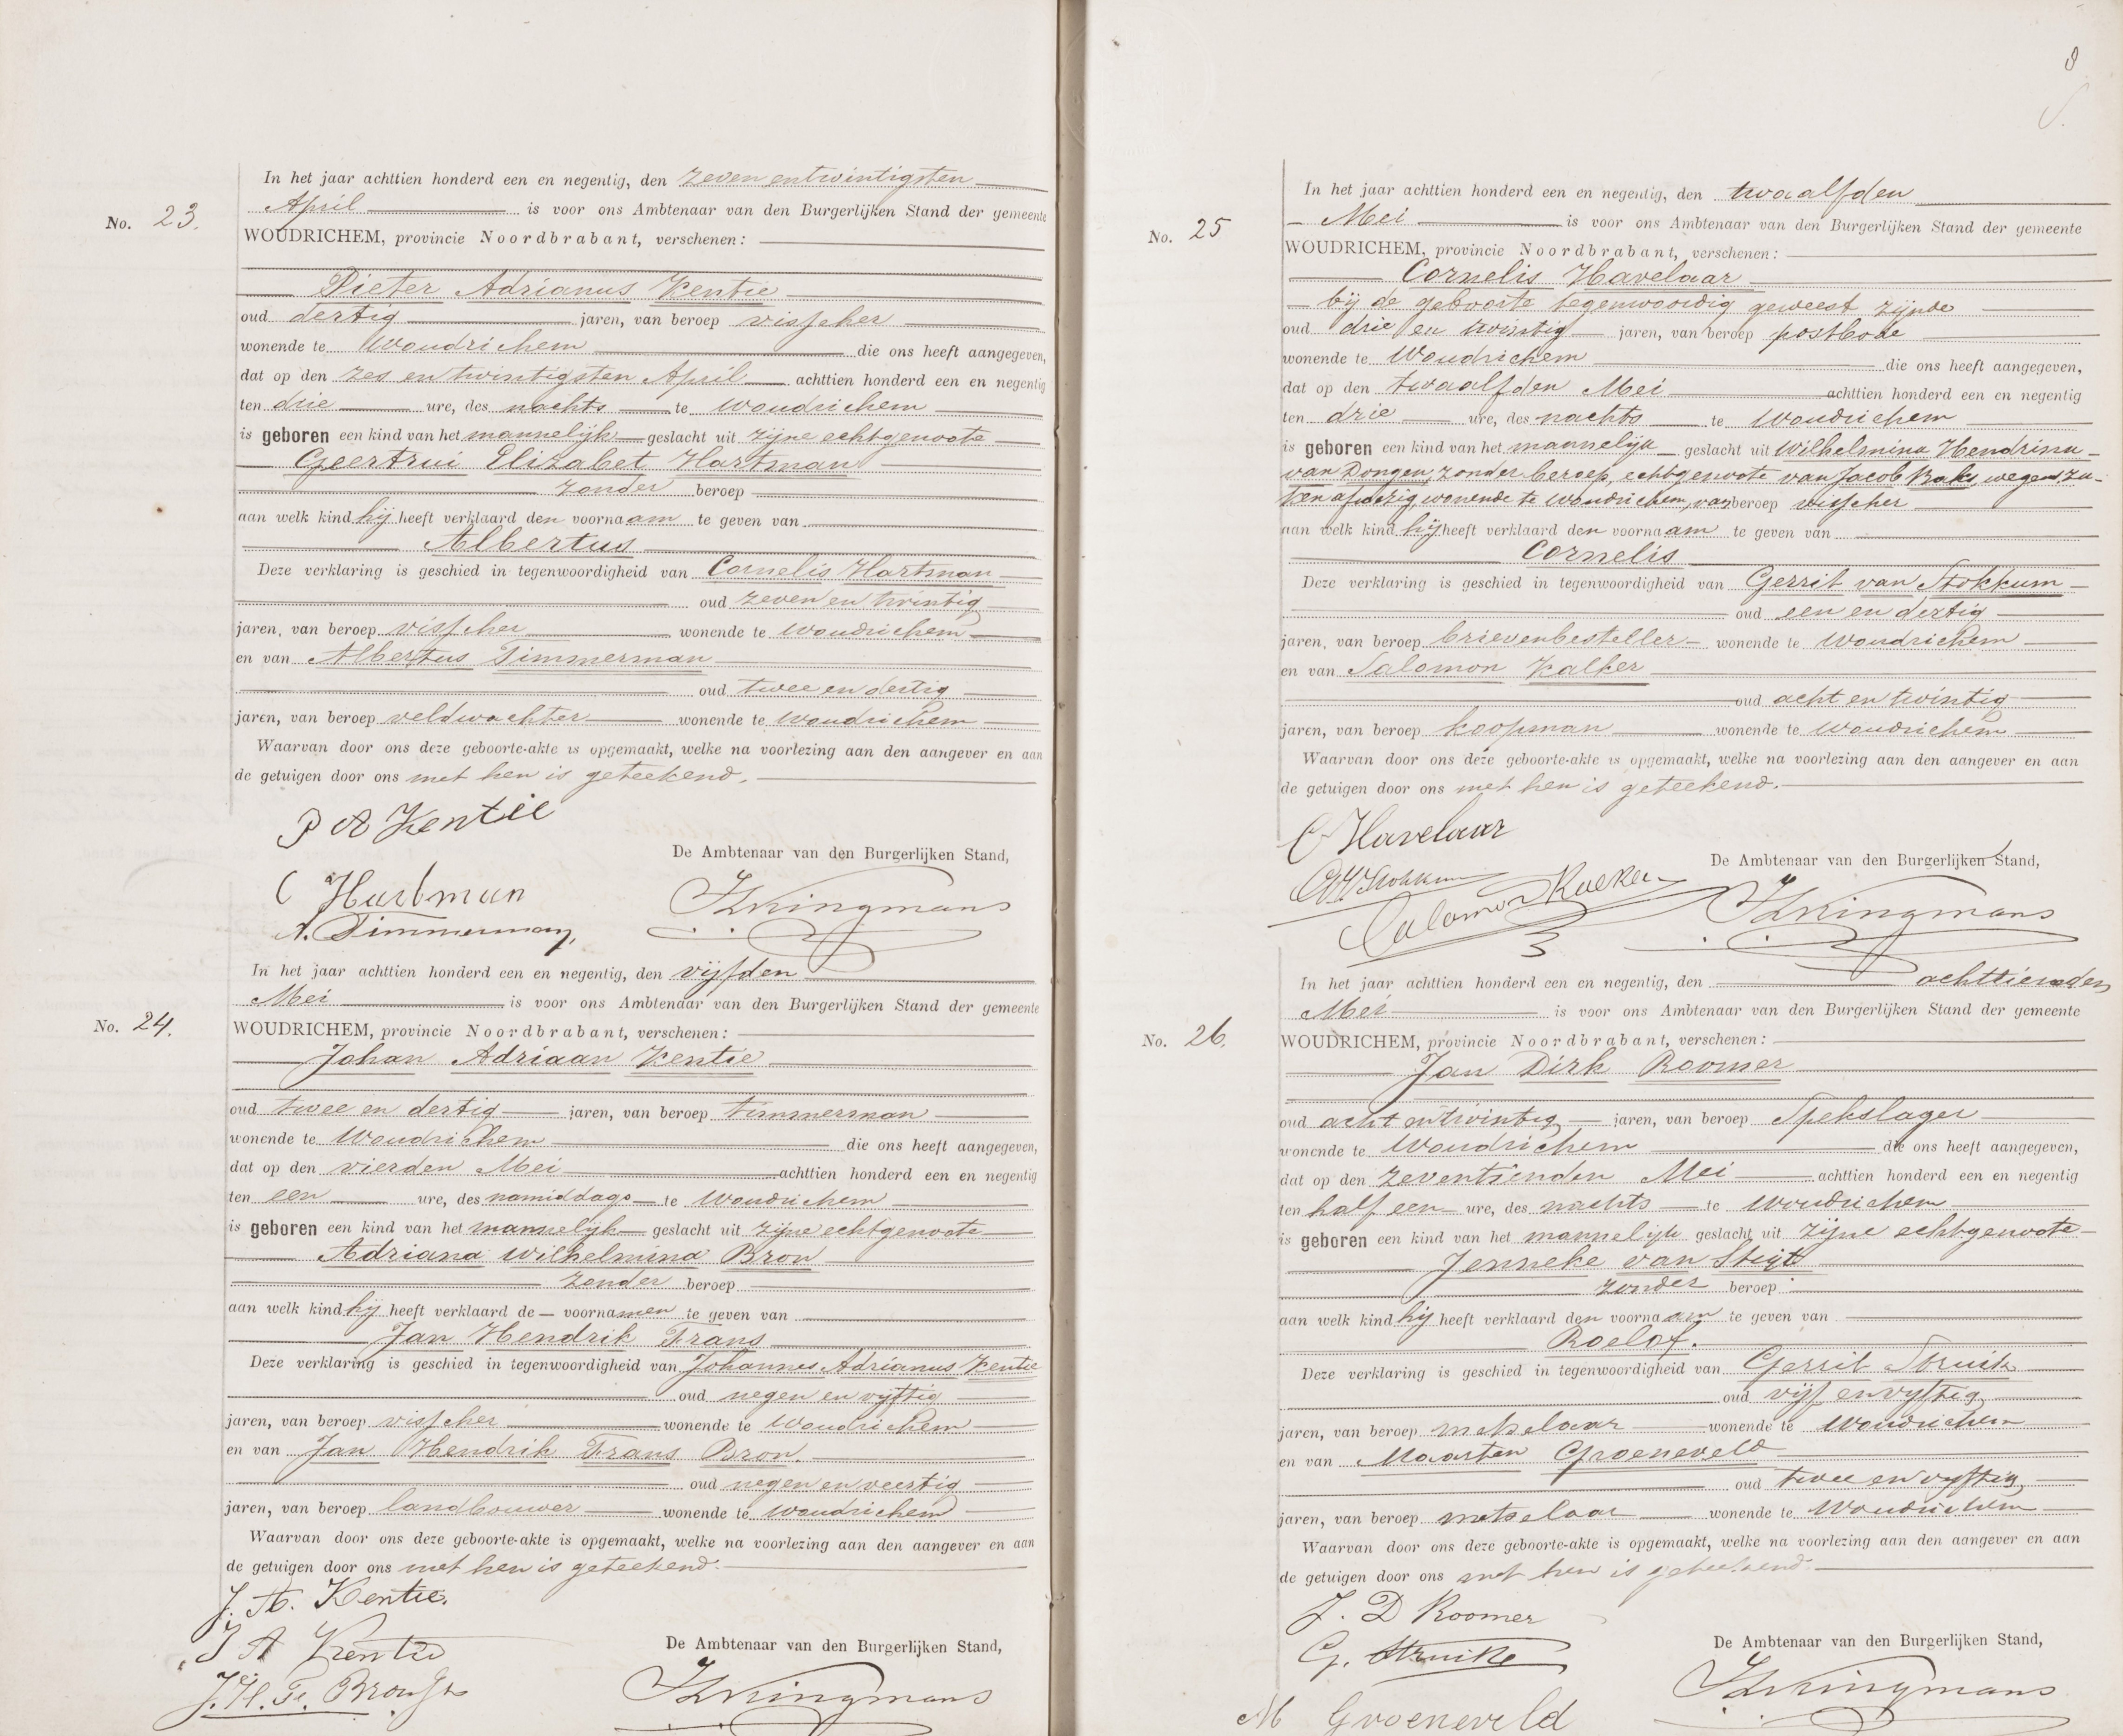 In het jaar achttien honderd een en negentig, den zeven en twintigsten
April is voor ons Ambtenaar van den Burgerlijken Stand der gemeente
No. 23.
WOUDRICHEM, provincie Noordbrabant, verschenen:
Pieter Adrianus Kentie
oud dertig jaren, van beroep visscher
wonende te Woudrichem die ons heeft aangegeven,
dat op den zes en twintigsten April achttien honderd een en negentig
ten drie ure, des nachts te Woudrichem
is geboren een kind van het mannelijk geslacht uit zijne echtgenoote
Geertrui Elizabet Hartman
zonder beroep
aan welk kind hij heeft verklaard den voornaam te geven van
Albertus
Deze verklaring is geschied in tegenwoordigheid van Cornelis Hartman
oud zeven en twintig
jaren, van beroep visscher wonende te Woudrichem
en van Albertus Timmerman
oud twee en dertig
jaren, van beroep veldwachter wonende te Woudrichem
Waarvan door ons deze geboorte-akte is opgemaakt, welke na voorlezing aan den aangever en aan
de getuigen door ons met hen is geteekend.
P A Kentie
De Ambtenaar van den Burgerlijken Stand,
C Hartman
A. Timmerman,
Kingmans
In het jaar achttien honderd een en negentig, den vijfden
Mei is voor ons Ambtenaar van den Burgerlijken Stand der gemeente
No. 24.
WOUDRICHEM, provincie Noordbrabant, verschenen:
Johan Adriaan Kentie
oud twee en dertig jaren, van beroep timmerman
wonende te Woudrichem die ons heeft aangegeven,
dat op den vierden Mei achttien honderd een en negentig
ten een ure, des namiddags te Woudrichem
is geboren een kind van het mannelijk geslacht uit zijne echtgenoote
Adriana Wilhelmina Bron
zonder beroep
aan welk kind hij heeft verklaard de voornamen te geven van
Jan Hendrik Frans
Deze verklaring is geschied in tegenwoordigheid van Johannes Adrianus Kentie
oud negen en vijftig
jaren, van beroep visscher wonende te Woudrichem
en van Jan Hendrik Frans Bron.
oud negen en veertig
jaren, van beroep landbouwer wonende te Woudrichem
Waarvan door ons deze geboorte-akte is opgemaakt, welke na voorlezing aan den aangever en aan
de getuigen door ons met hen is geteekend.
J. A. Kentie.
J A Kentie
De Ambtenaar van den Burgerlijken Stand,
J. H. F. Bron
Kingmans
8
In het jaar achttien honderd een en negentig, den twaalfden
Mei is voor ons Ambtenaar van den Burgerlijken Stand der gemeente
No. 25
WOUDRICHEM, provincie Noordbrabant, verschenen:
Cornelis Havelaar
bij de geboorte tegenwoordig geweest zijnde
oud drie en twintig jaren, van beroep postbode
wonende te Woudrichem die ons heeft aangegeven,
dat op den twaalfden Mei achttien honderd een en negentig
ten drie ure, des nachts te Woudrichem
is geboren een kind van het mannelijk geslacht uit Wilhelmina Hendrina
van Dongen, zonder beroep, echtgenoote van Jacob Bak, wegens za-
ken afwezig, wonende te Woudrichem, van beroep visscher
aan welk kind hij heeft verklaard den voornaam te geven van
Cornelis
Deze verklaring is geschied in tegenwoordigheid van Gerrit van Stokkum
oud een en dertig
jaren, van beroep brievenbesteller wonende te Woudrichem
en van Salomon Kalker
oud acht en twintig
jaren, van beroep koopman wonende te Woudrichem
Waarvan door ons deze geboorte-akte is opgemaakt, welke na voorlezing aan den aangever en aan
de getuigen door ons met hen is geteekend.
C Havelaar
De Ambtenaar van den Burgerlijken Stand,
Salomon
Kingmans
In het jaar achttien honderd een en negentig, den achttienden
Mei is voor ons Ambtenaar van den Burgerlijken Stand der gemeente
No. 26.
WOUDRICHEM, provincie Noordbrabant, verschenen:
Jan Dirk Roomer
oud acht en twintig jaren, van beroep Spekslager
wonende te Woudrichem die ons heeft aangegeven,
dat op den zeventienden Mei achttien honderd een en negentig
ten half een ure, des nachts te Woudrichem
is geboren een kind van het mannelijk geslacht uit zijne echtgenoote
Jenneke van Stigt
zonder beroep
aan welk kind hij heeft verklaard den voornaam te geven van
Roelof.
Deze verklaring is geschied in tegenwoordigheid van Gerrit Struik
oud vijf en vijftig
jaren, van beroep metselaar wonende te Woudrichem
en van Maarten Groeneveld
oud twee en vijftig
jaren, van beroep metselaar wonende te Woudrichem
Waarvan door ons deze geboorte-akte is opgemaakt, welke na voorlezing aan den aangever en aan
de getuigen door ons met hen is geteekend.
J. D Roomer
De Ambtenaar van den Burgerlijken Stand,
G. Struik
M Groeneveld
Kingmans